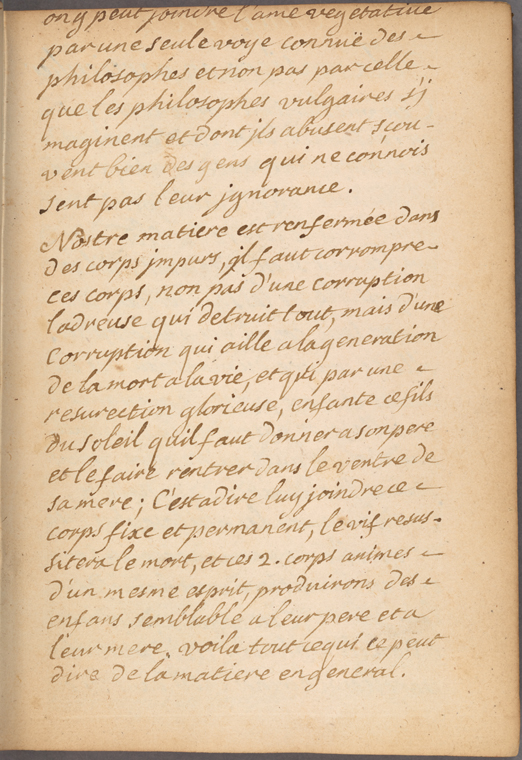 on y peut joindre l'ame vegetative
par une seule voye connuë des
philosophes et non pas par celle
que les philosophes vulgaires s'j
maginent et dont jls abusent scou-
vent bien des gens qui ne connois
sent pas leur jgnorance.
Nostre matiere est renfermée dans
des corps jmpurs, jl faut corrompre
ces corps, non pas d'une corruption
ladreuse qui detruit tout, mais d'une
corruption qui aille a la generation
de la mort a la vie, et qui par une
resurection glorieuse, enfante ce fils
du soleil quil faut donner a son pere
et le faire rentrer dans le ventre de
sa mere; C'est a dire luy joindre ce
corps fixe et permanent, le vif resus-
sitera le mort, et ces 2. corps animes
d'un mesme esprit, produirons des
enfans semblable a leur pere et a
leur mere. voila tout ce qui ce peut
dire de la matiere en general.